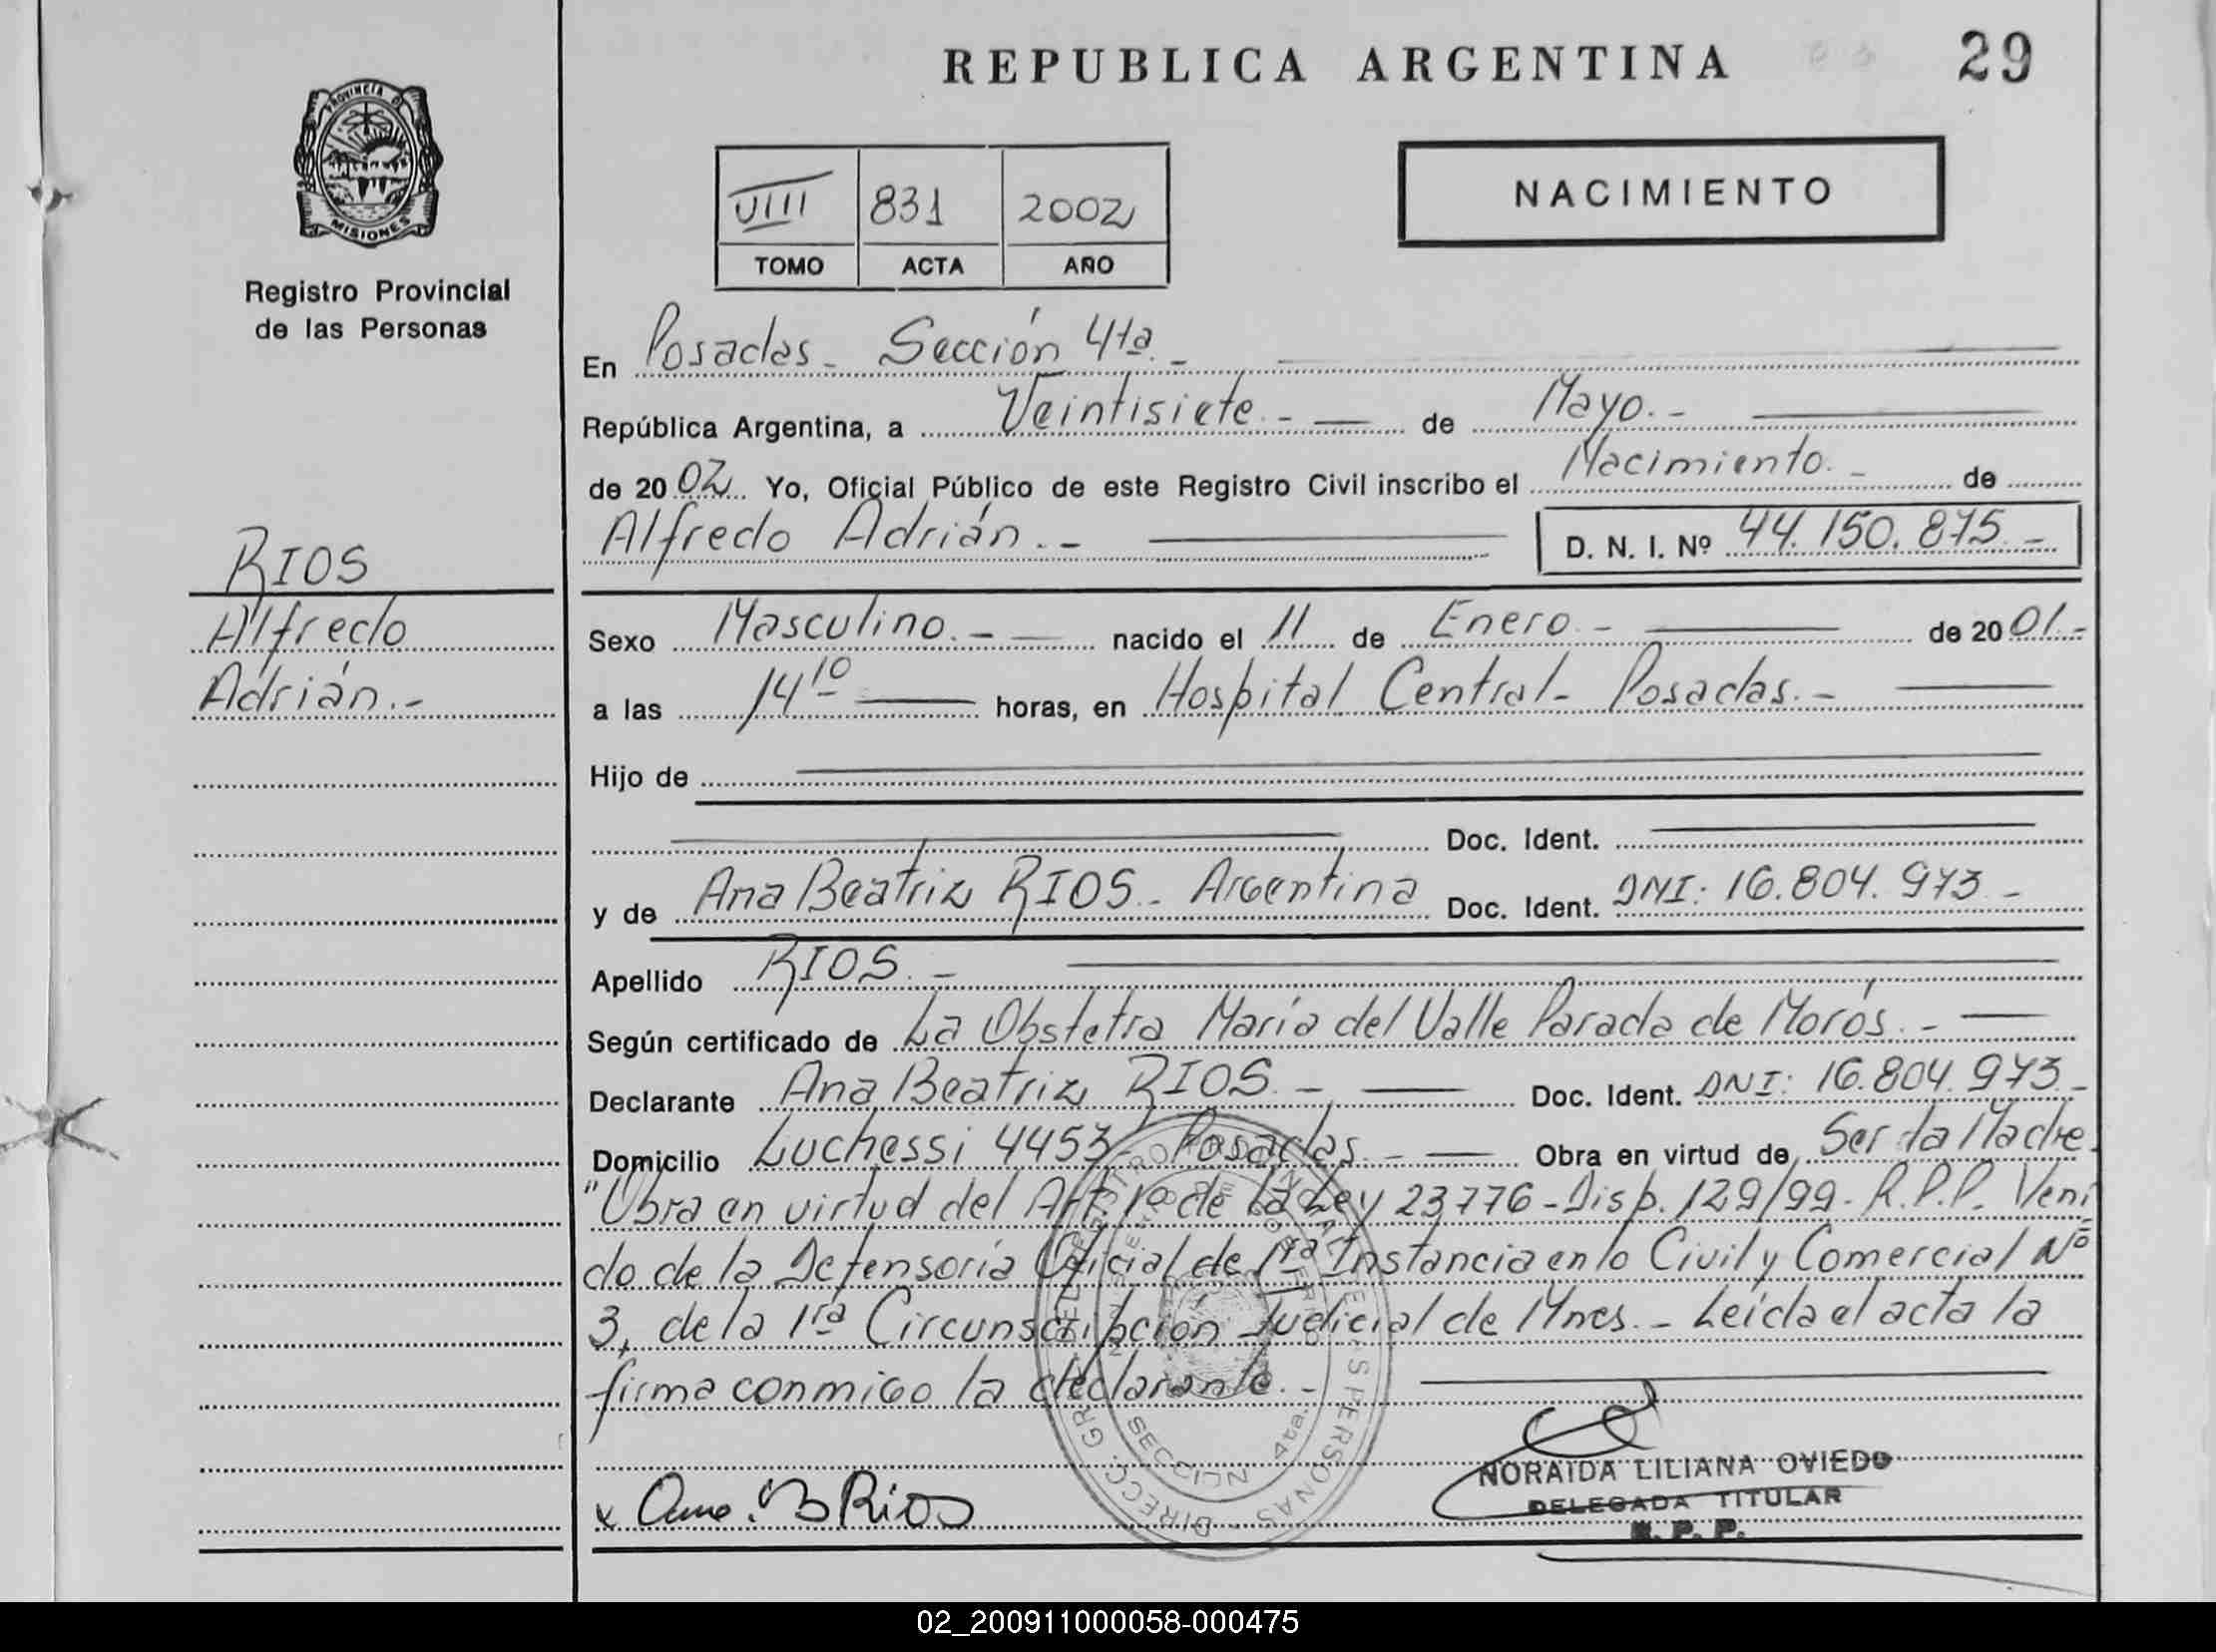 REPUBLICA ARGENTINA
29
PROVINCIA DE
MISIONES
Registro Provincial
de las Personas
VIII 831 2002
TOMO ACTA AÑO
NACIMIENTO
En Posadas - Sección 4ta. -
República Argentina, a Veintisiete. - de Mayo. -
de 2002 Yo, Oficial Público de este Registro Civil inscribo el Nacimiento. - de
Alfredo Adrián. - D. N. I. Nº 44.150.875 -
RIOS
Alfredo
Adrián. -
Sexo Masculino. - nacido el 11 de Enero - de 2001. -
a las 14 10 horas, en Hospital Central - Posadas. -
Hijo de
Doc. Ident.
y de Ana Beatriz RIOS - Argentina Doc. Ident. DNI: 16.804.973 -
Apellido RIOS. -
Según certificado de La Obstetra María del Valle Parada de Morós. -
Declarante Ana Beatriz RIOS - Doc. Ident. DNI: 16.804.973 -
Domicilio Luchessi 4453 - Posadas - Obra en virtud de Ser la Madre.
"Obra en virtud del Art. 1º de la Ley 23776 - Disp. 129/99 - R.P.P. Veni
do de la Defensoría Oficial de 1ra Instancia en lo Civil y Comercial Nº
3, de la 1ra Circunscripción Judicial de Mnes. - Leída el acta la
firma conmigo la declarante. -
DIRECC. GRAL. DEL REGISTRO PROVINCIAL DE LAS PERSONAS
SECCION 4ta.
x Ana B Rios
NORAIDA LILIANA OVIEDO
DELEGADA TITULAR
R. P. P.
02_200911000058-000475